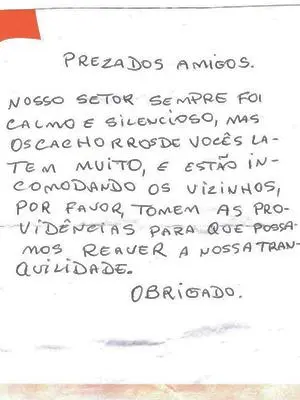 PREZADOS AMIGOS.
NOSSO SETOR SEMPRE FOI
CALMO E SILENCIOSO, MAS
OS CACHORROS DE VOCÊS LA-
TEM MUITO, E ESTÃO IN-
COMODANDO OS VIZINHOS,
POR FAVOR, TOMEM AS PRO-
VIDÊNCIAS PARA QUE POSSA-
MOS REAVER A NOSSA TRAN-
QUILIDADE.
OBRIGADO.